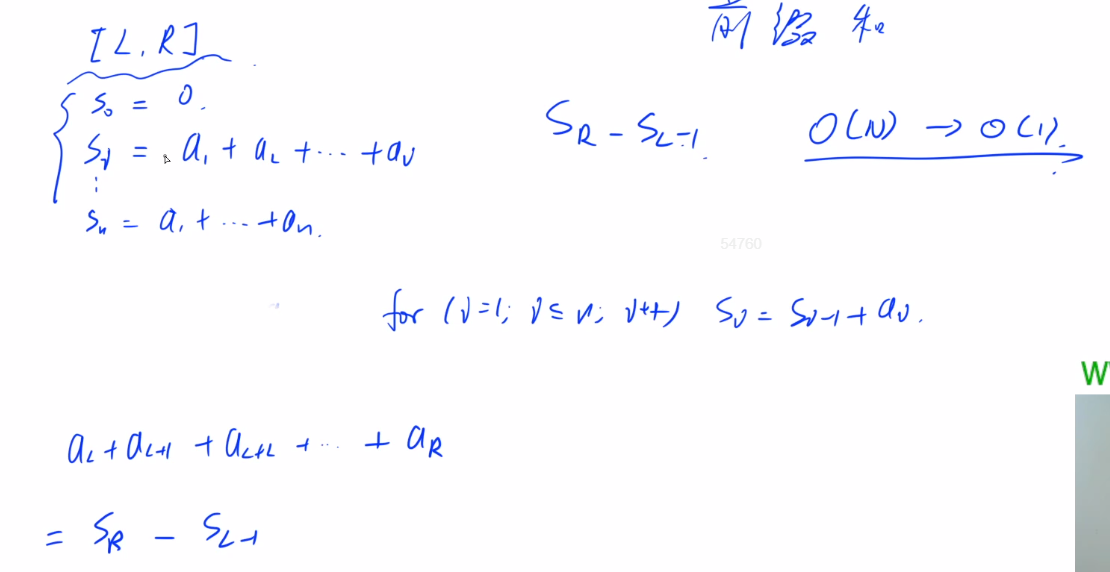 前缀和
[L, R]
S₀ = 0.
Sᵢ = a₁ + a₂ + ... + aᵢ
⋮
Sₙ = a₁ + ... + aₙ.
S_R - S_{L-1}.
O(N) → O(1).
54760
for (i=1; i≤n; i++) Sᵢ = Sᵢ₋₁ + aᵢ.
W
a_L + a_{L+1} + a_{L+2} + ... + a_R
= S_R - S_{L-1}